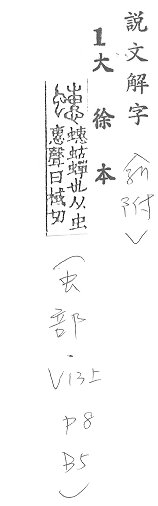 說文解字〈新附〉
1大徐本
蟪
蟪蛄蟬也从虫
惠聲日械切
(虫部・V13上P8B5)